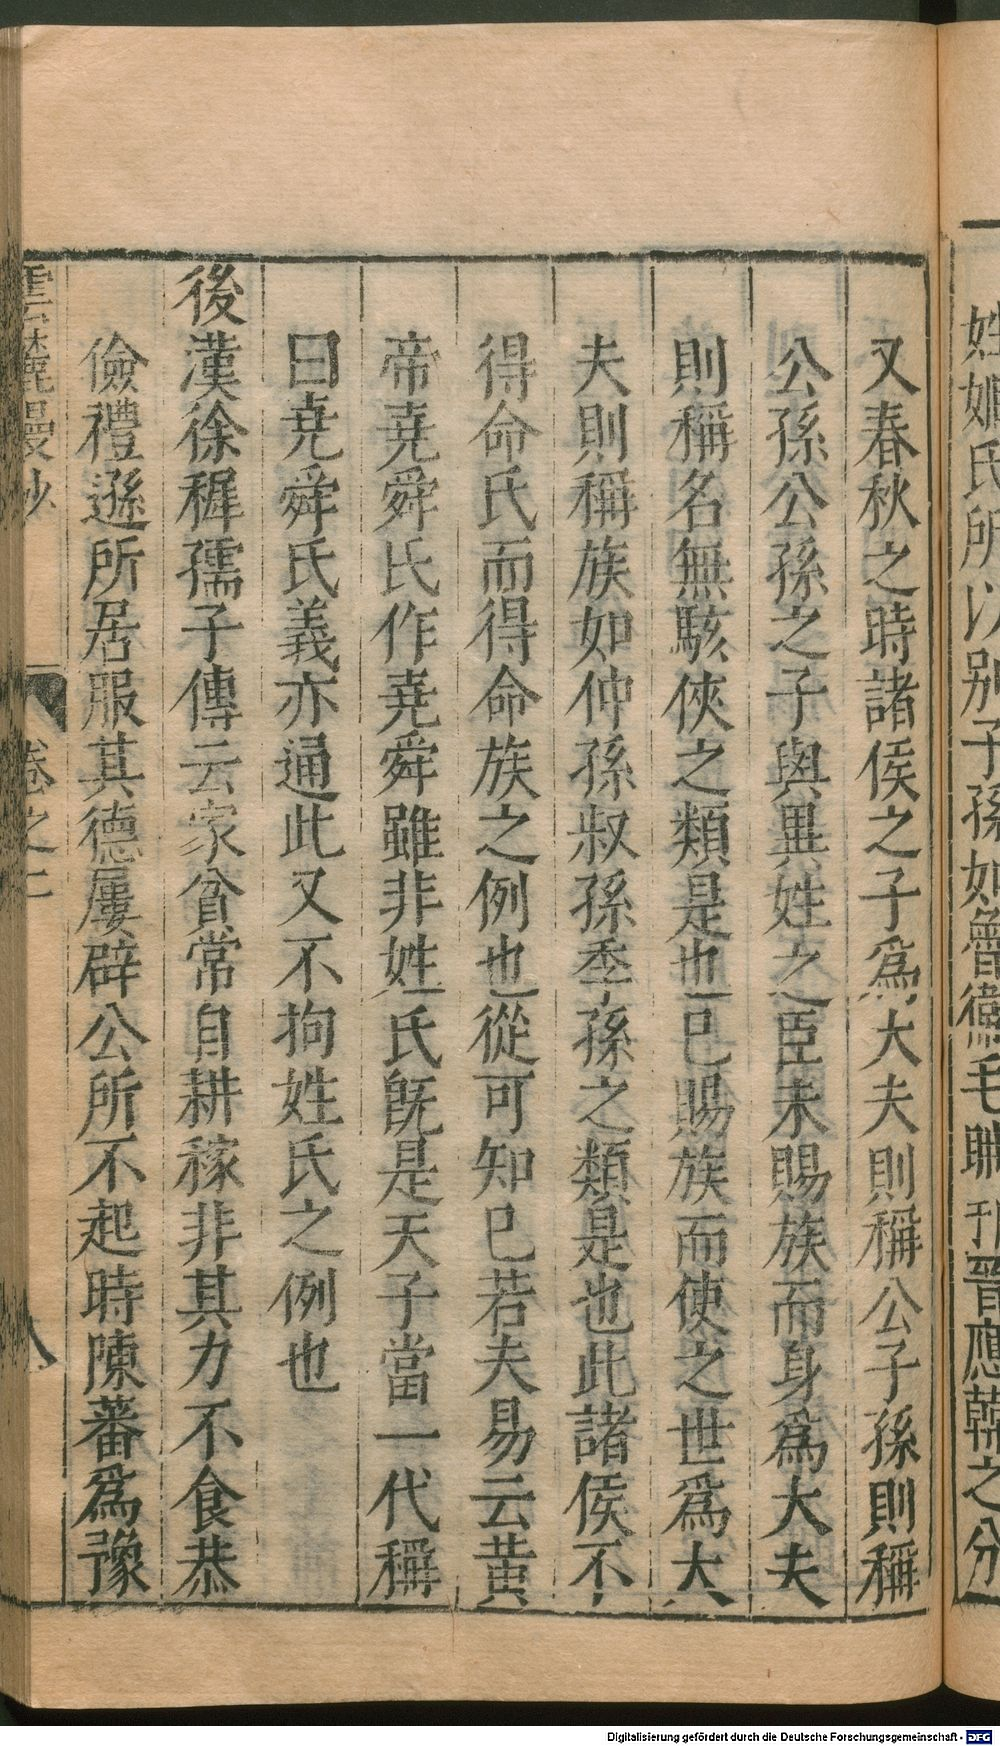 姓婣氏所以別子孫如魯衛毛聃邘晉應韓之分
又春秋之時諸侯之子爲大夫則稱公子孫則稱
公孫公孫之子與異姓之臣未賜族而身爲大夫
則稱名無駭俠之類是也已賜族而使之世爲大
夫則稱族如仲孫叔孫季孫之類是也此諸侯不
得命氏而得命族之例也從可知已若夫易云黄
帝堯舜氏作堯舜雖非姓氏旣是天子當一代稱
曰堯舜氏義亦通此又不拘姓氏之例也
後漢徐穉孺子傳云家貧常自耕稼非其力不食恭
儉禮遜所居服其德屢辟公所不起時陳蕃爲豫
雲麓漫抄 卷之二 八
Digitalisierung gefördert durch die Deutsche Forschungsgemeinschaft - DFG